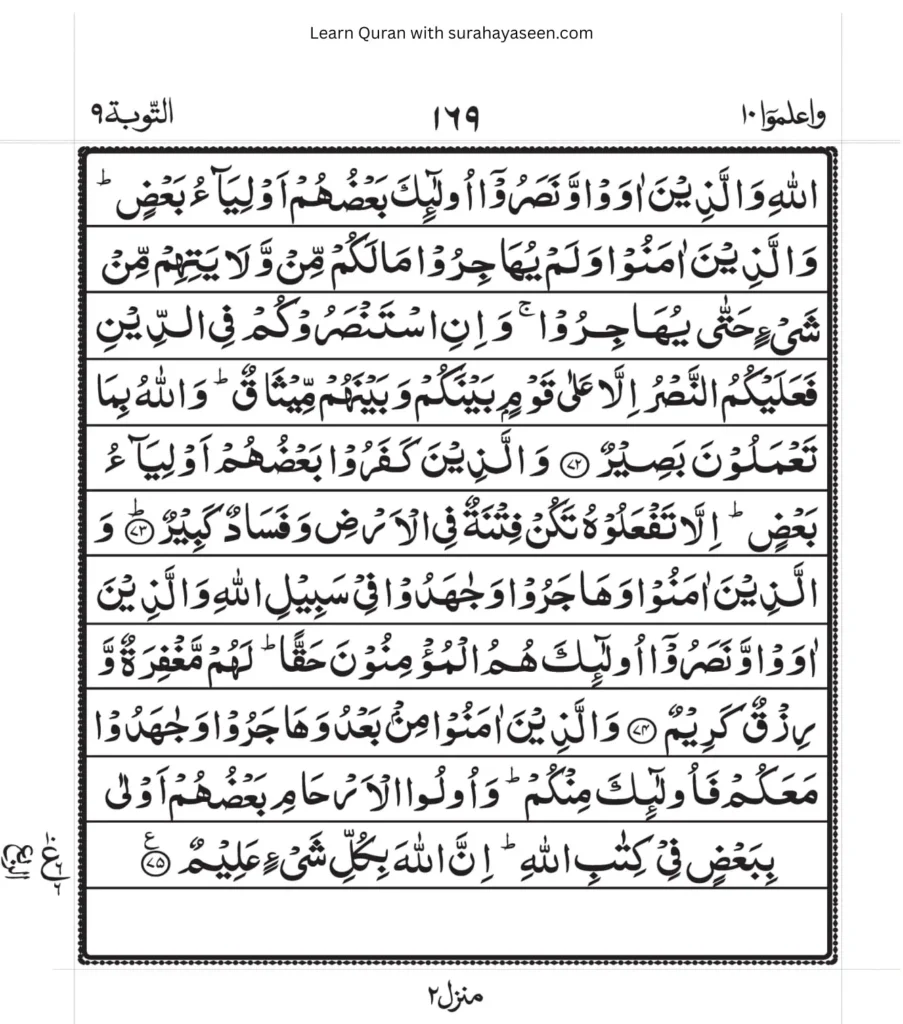 Learn Quran with surahayaseen.com
واعلموٓا ١٠ ١٦٩ التّوبة ٩
اللّٰهِ وَالَّذِيْنَ اٰوَوْا وَّنَصَرُوْٓا اُولٰٓئِكَ بَعْضُهُمْ اَوْلِيَآءُ بَعْضٍ ؕ
وَالَّذِيْنَ اٰمَنُوْا وَلَمْ يُهَاجِرُوْا مَا لَكُمْ مِّنْ وَّلَايَتِهِمْ مِّنْ
شَيْءٍ حَتّٰى يُهَاجِرُوْا ۚ وَاِنِ اسْتَنْصَرُوْكُمْ فِي الدِّيْنِ
فَعَلَيْكُمُ النَّصْرُ اِلَّا عَلٰى قَوْمٍۭ بَيْنَكُمْ وَبَيْنَهُمْ مِّيْثَاقٌ ؕ وَاللّٰهُ بِمَا
تَعْمَلُوْنَ بَصِيْرٌ ﴿۷۲﴾ وَالَّذِيْنَ كَفَرُوْا بَعْضُهُمْ اَوْلِيَآءُ
بَعْضٍ ؕ اِلَّا تَفْعَلُوْهُ تَكُنْ فِتْنَةٌ فِي الْاَرْضِ وَفَسَادٌ كَبِيْرٌ ؕ﴿۷۳﴾ وَ
الَّذِيْنَ اٰمَنُوْا وَهَاجَرُوْا وَجٰهَدُوْا فِيْ سَبِيْلِ اللّٰهِ وَالَّذِيْنَ
اٰوَوْا وَّنَصَرُوْٓا اُولٰٓئِكَ هُمُ الْمُؤْمِنُوْنَ حَقًّا ؕ لَهُمْ مَّغْفِرَةٌ وَّ
رِزْقٌ كَرِيْمٌ ﴿۷۴﴾ وَالَّذِيْنَ اٰمَنُوْا مِنْۢ بَعْدُ وَهَاجَرُوْا وَجٰهَدُوْا
مَعَكُمْ فَاُولٰٓئِكَ مِنْكُمْ ؕ وَاُولُوا الْاَرْحَامِ بَعْضُهُمْ اَوْلٰى
بِبَعْضٍ فِيْ كِتٰبِ اللّٰهِ ؕ اِنَّ اللّٰهَ بِكُلِّ شَيْءٍ عَلِيْمٌ ﴿۷۵﴾ ع
منزل ٢